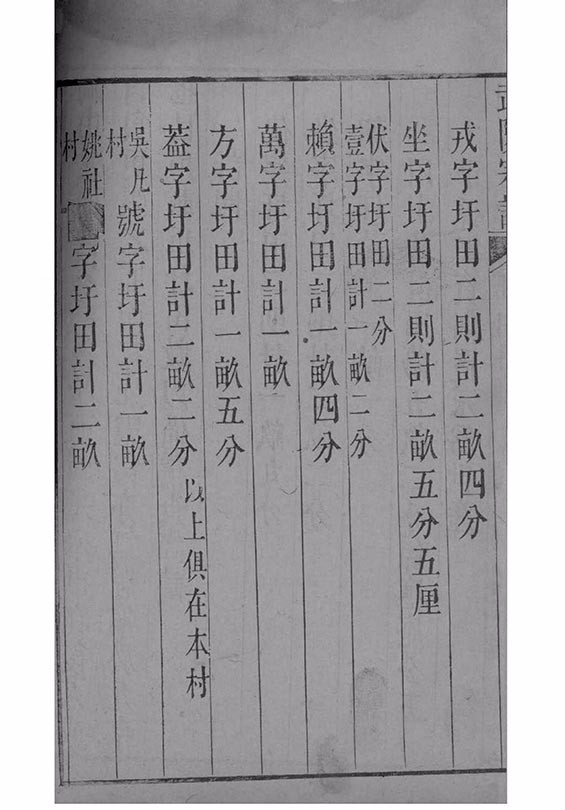 戎字圩田二則計二畝四分
坐字圩田二則計二畝五分五厘
伏字圩田二分
壹字圩田計一畝二分
賴字圩田計一畝四分
萬字圩田計一畝
方字圩田計一畝五分
葢字圩田計二畝二分 以上俱在本村
吳凡村 號字圩田計一畝
姚社村 字圩田計二畝